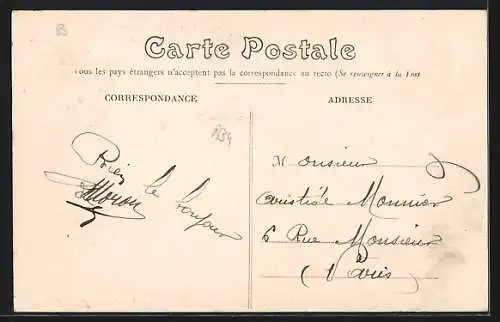 B
Carte Postale
Tous les pays étrangers n'acceptent pas la correspondance au recto (Se renseigner à la Post
CORRESPONDANCE
ADRESSE
Bien le bonjour
Monsieur
Aristide Monnier
6 Rue Monsieur
(Paris